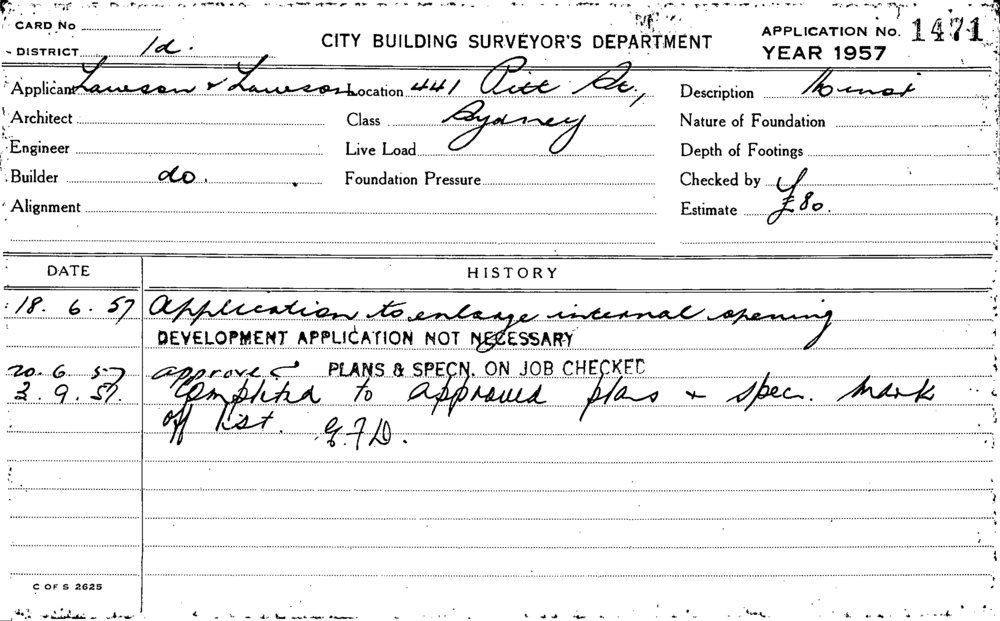 CARD No
DISTRICT 1d.
CITY BUILDING SURVEYOR'S DEPARTMENT
APPLICATION No. 1471
YEAR 1957
Applicant Lawson & Lawson Location 441 Pitt St., Description Minor
Architect Class Sydney Nature of Foundation
Engineer Live Load Depth of Footings
Builder do. Foundation Pressure Checked by
Alignment Estimate £80.
DATE HISTORY
18. 6. 57 Application to enlarge internal opening
DEVELOPMENT APPLICATION NOT NECESSARY
20. 6. 57 approved PLANS & SPECN. ON JOB CHECKED
3. 9. 57. Completed to approved plans & specn. Mark
off list. G.F.D.
C OF S 2625